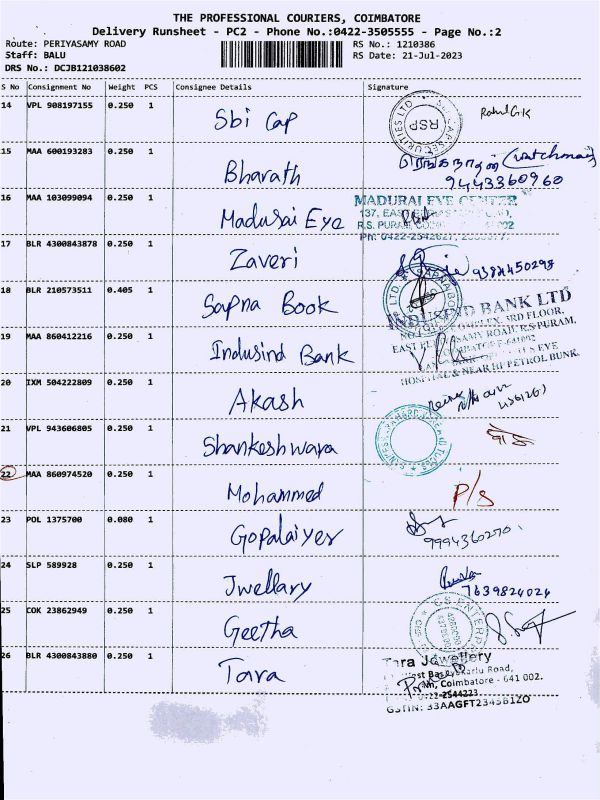 THE PROFESSIONAL COURIERS, COIMBATORE
Delivery Runsheet - PC2 - Phone No.:0422-3505555 - Page No.:2
Route: PERIYASAMY ROAD
RS No.: 1210386
Staff: BALU
RS Date: 21-Jul-2023
DRS No.: DCJB121038602
S No Consignment No Weight PCS Consignee Details Signature
14 VPL 908197155 0.250 1 Sbi Cap RSP Rahul G.K
15 MAA 600193283 0.250 1 Bharath ரெங்கநாதன் (watchman)
9443360960
16 MAA 103099094 0.250 1 Madurai Eye MADURAI EYE CENTER
137, EAST
R.S. PURAM,
Ph: 0422-2542627,
17 BLR 4300843878 0.250 1 Zaveri 9384450298
18 BLR 210573511 0.405 1 Sapna Book
INDUSIND BANK LTD
COMPLEX, 3RD FLOOR,
19 MAA 860412216 0.250 1 Indusind Bank EAST ROAD R.S PURAM,
EYE
HOSPITAL & NEAR HP PETROL BUNK.
20 IXM 504222809 0.250 1 Akash
21 VPL 943606805 0.250 1 Shankeshwara
22 MAA 860974520 0.250 1 Mohammed P/s
23 POL 1375700 0.080 1 Gopalaiyer
9994360270
24 SLP 589928 0.250 1 Jwellary
7639824024
25 COK 23862949 0.250 1 Geetha
26 BLR 4300843880 0.250 1 Tara Tara Jewellery
West Road,
Coimbatore - 641 002.
0422-2544223
GSTIN: 33AAGFT2345B1ZO